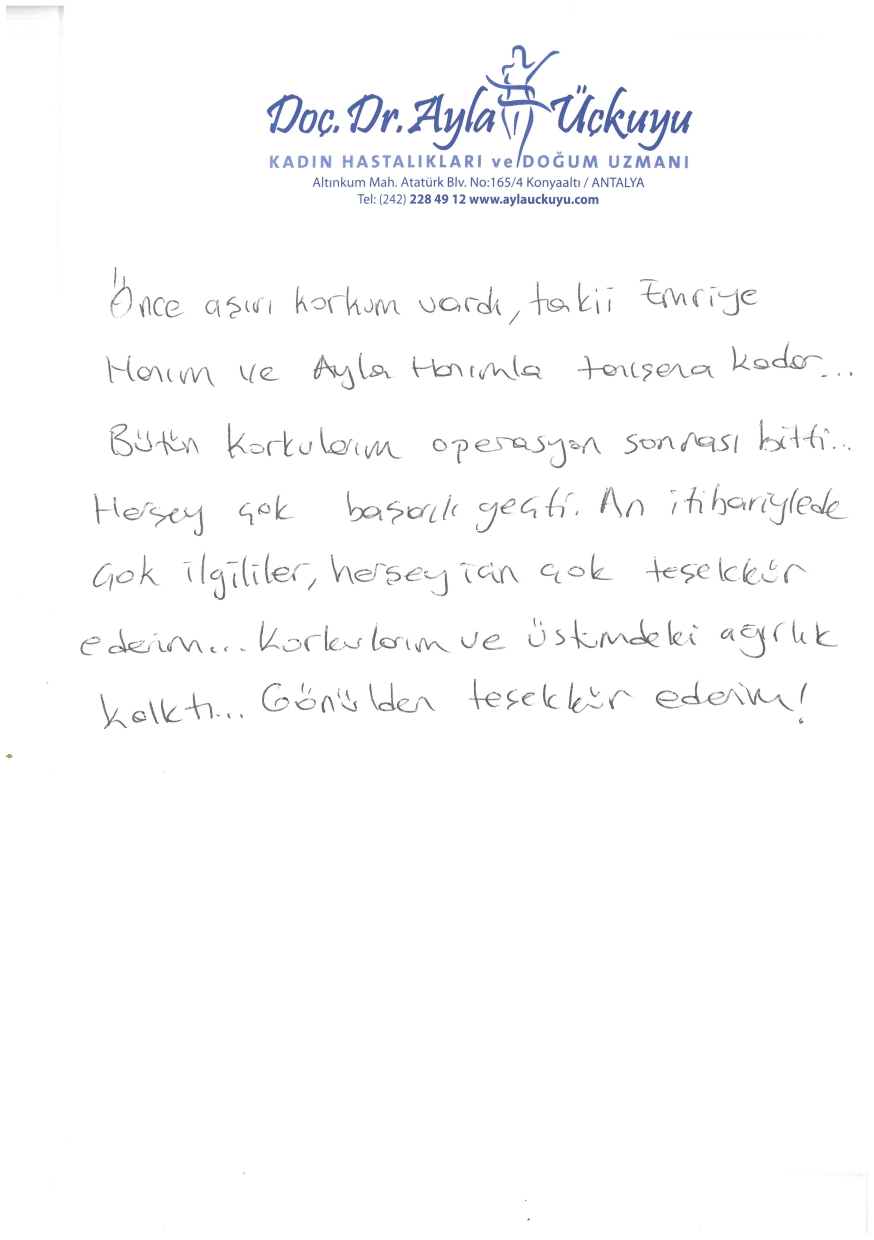 Doç. Dr. Ayla Üçkuyu
KADIN HASTALIKLARI ve DOĞUM UZMANI
Altınkum Mah. Atatürk Blv. No:165/4 Konyaaltı / ANTALYA
Tel: (242) 228 49 12 www.aylauckuyu.com
Önce aşırı korkum vardı, takii Emriye
Hanım ve Ayla Hanımla tanışana kadar...
Bütün korkularım operasyon sonrası bitti...
Herşey çok başarılı geçti. An itibariylede
çok ilgililer, herşey için çok teşekkür
ederim... Korkularım ve üstümdeki ağırlık
kalktı... Gönülden teşekkür ederim!